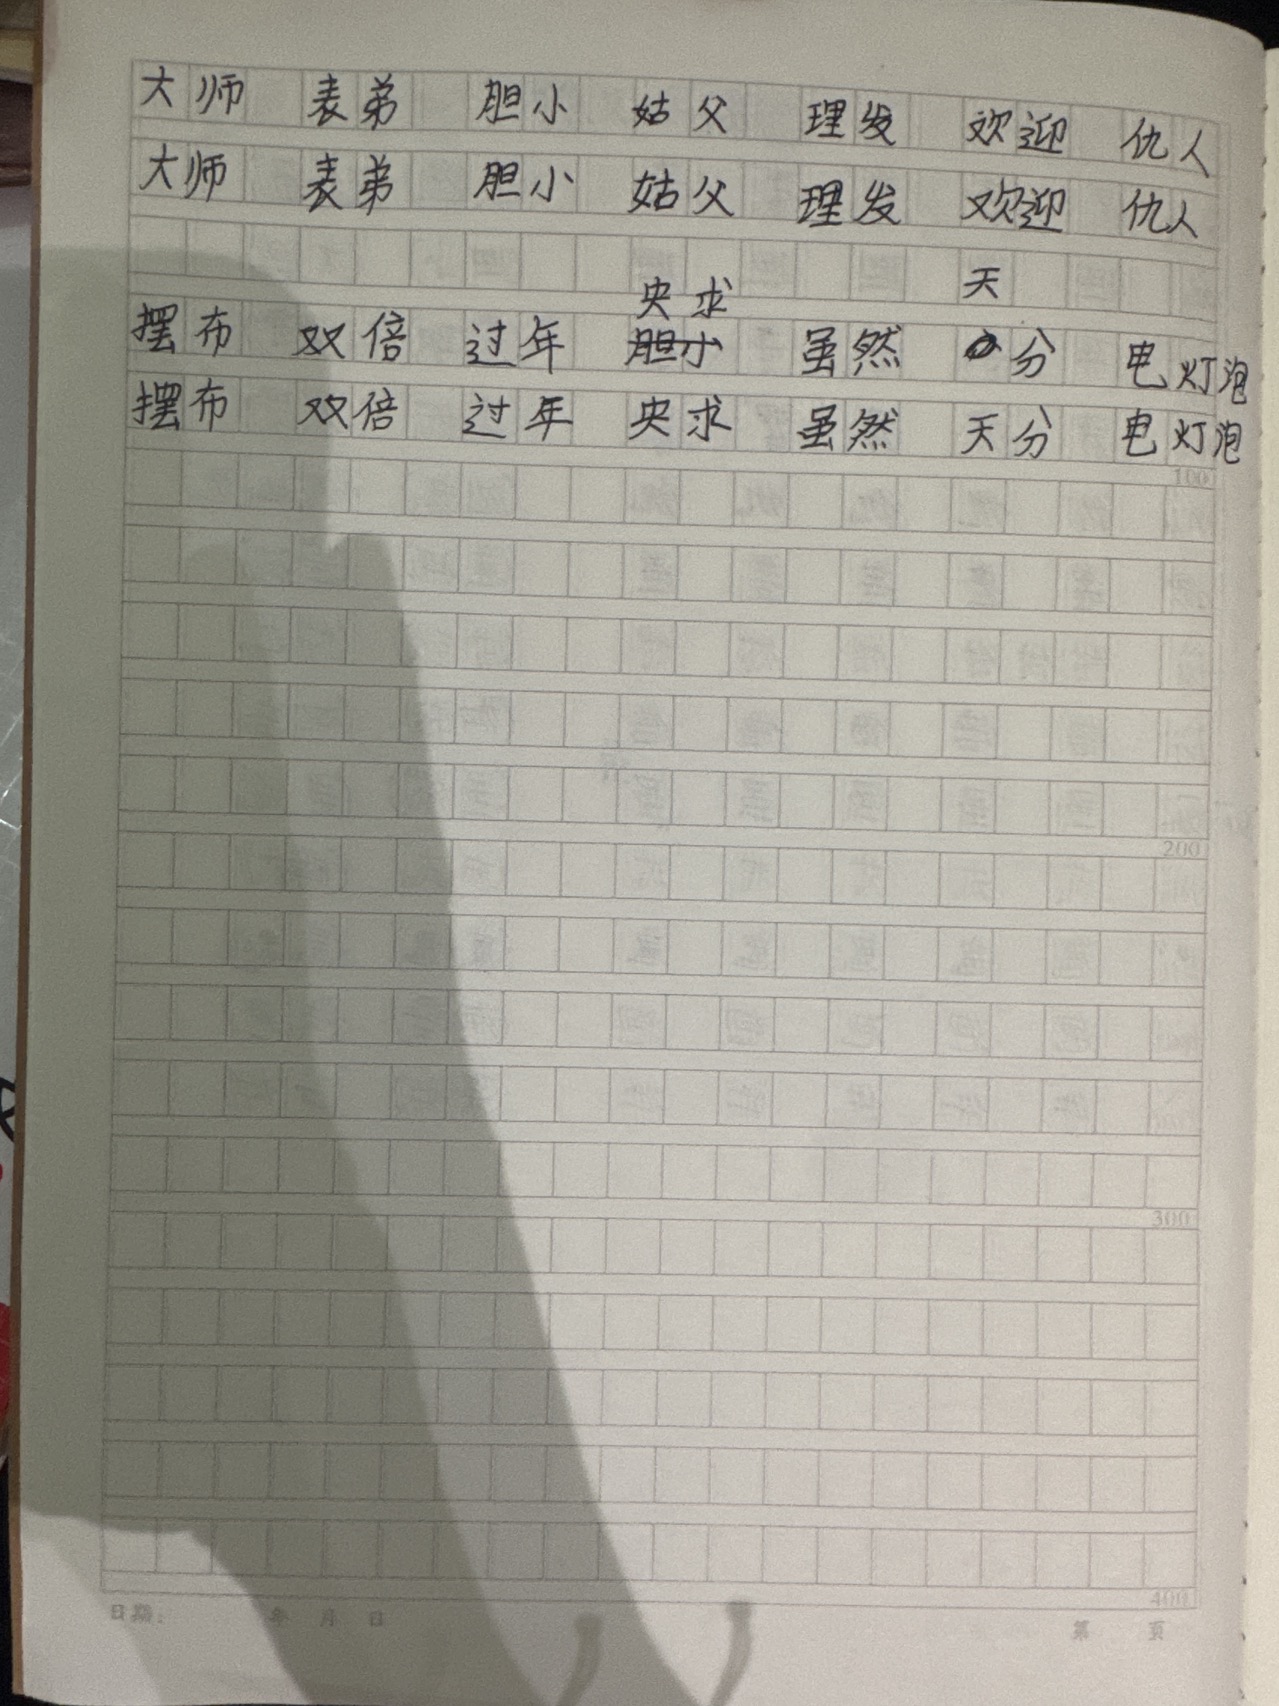 大师 表弟 胆小 姑父 理发 欢迎 仇人
大师 表弟 胆小 姑父 理发 欢迎 仇人
央求 天
摆布 双倍 过年 胆小 虽然 分 电灯泡
摆布 双倍 过年 央求 虽然 天分 电灯泡
100
200
300
400
日期： 年 月 日 第 页